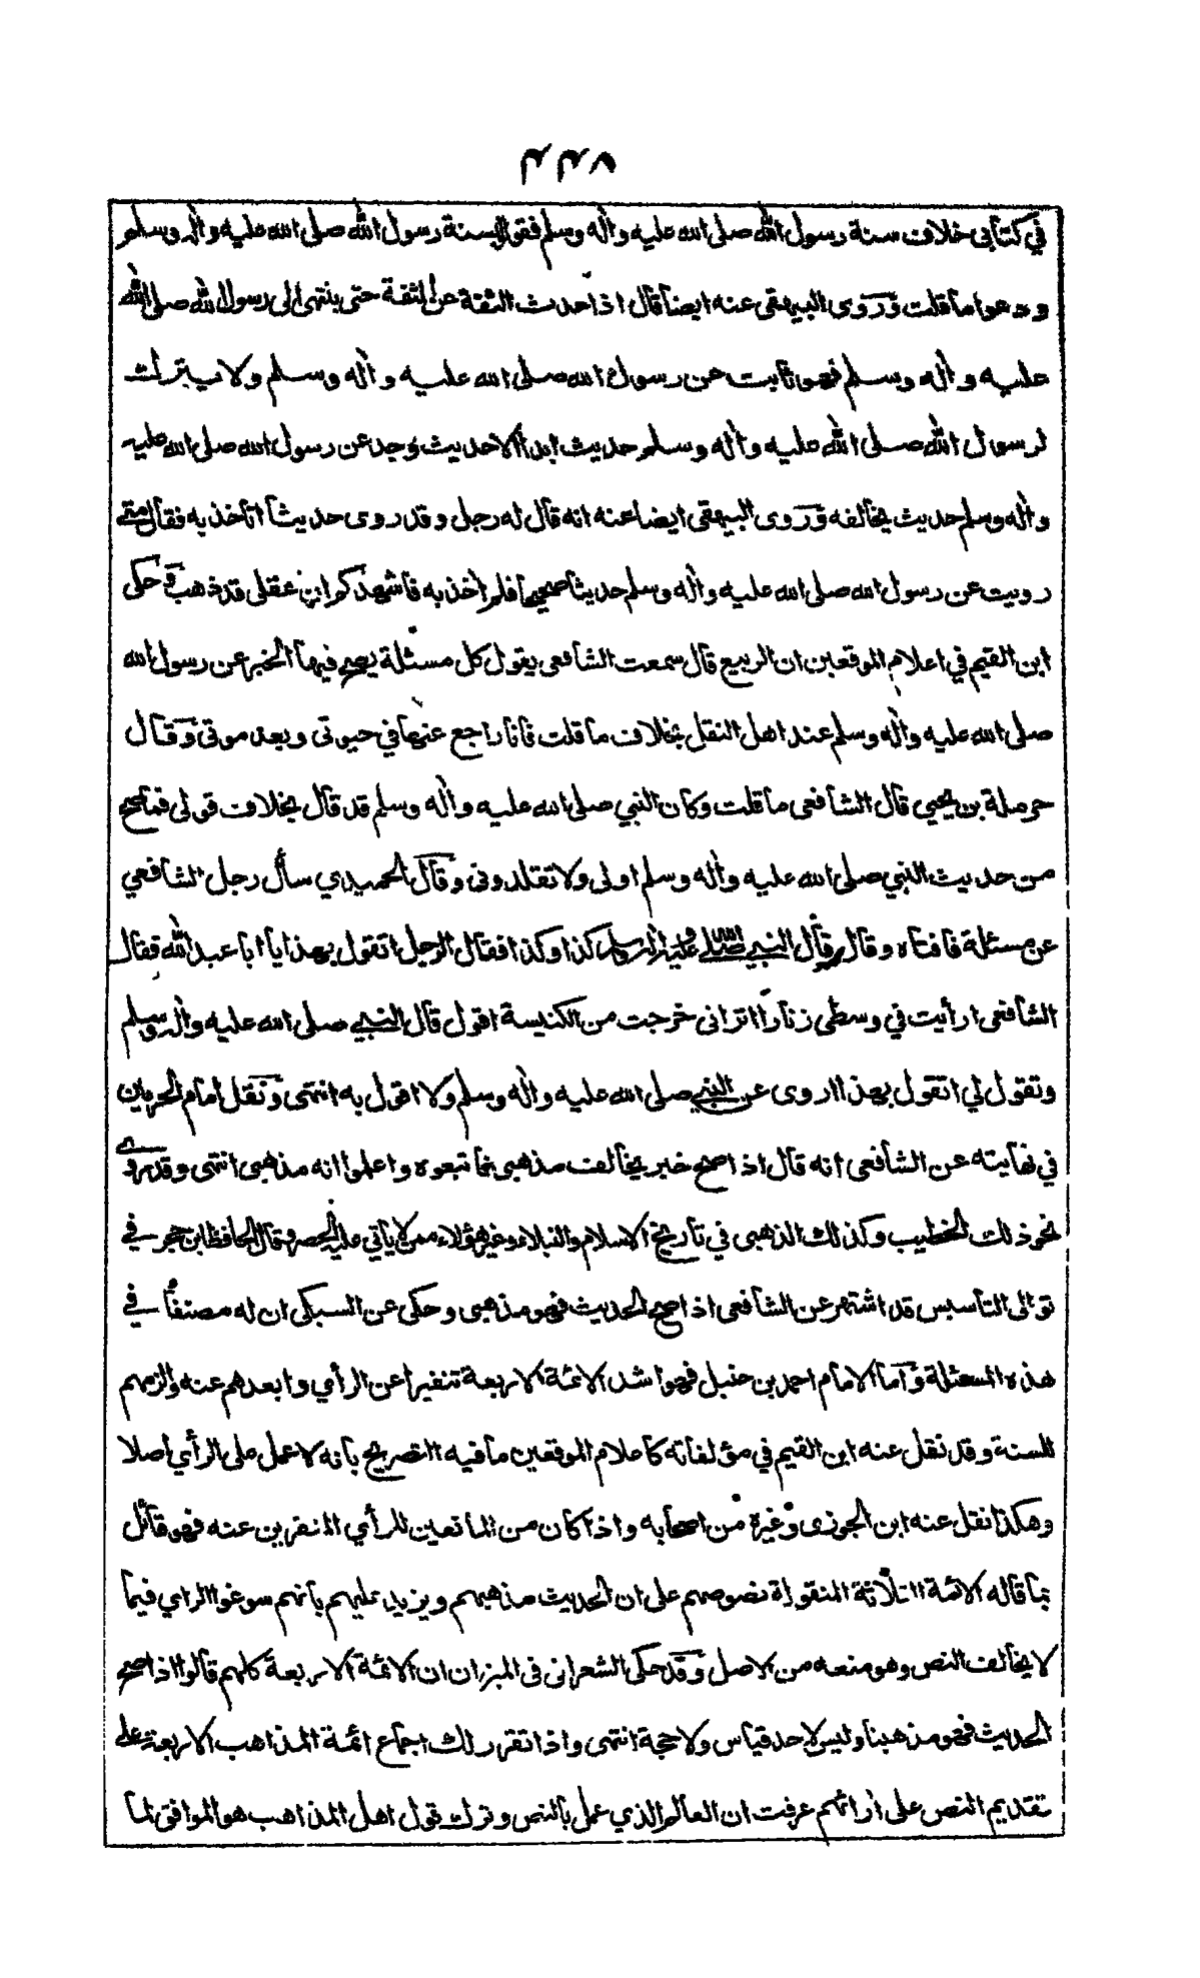 ٧٣٣
في كتابي خلاف سنة رسول الله صلى الله عليه وآله وسلم فقولوا بسنة رسول الله صلى الله عليه وآله وسلم
ودعوا ما قلت وروى البيهقى عنه ايضا قال اذا حدث الثقة عن الثقة حتى ينتهى الى رسول الله صلى الله
عليه وآله وسلم فهو ثابت عن رسول الله صلى الله عليه وآله وسلم ولا يترك
لرسول الله صلى الله عليه وآله وسلم حديث ابدا الا حديث وجد عن رسول الله صلى الله عليه
وآله وسلم حديث يخالفه وروى البيهقى ايضا عنه انه قال له رجل وقد روى حديثا اتأخذ به فقال متى
رويت عن رسول الله صلى الله عليه وآله وسلم حديثا صحيحا فلم آخذ به فاشهدكم ان عقلى قد ذهب وحكى
ابن القيم في اعلام الموقعين ان الربيع قال سمعت الشافعى يقول كل مسئلة يصح فيها الخبر عن رسول الله
صلى الله عليه وآله وسلم عند اهل النقل بخلاف ما قلت فانا راجع عنها في حيوتى وبعد موتى وقال
حرملة بن يحيي قال الشافعى ما قلت وكان النبي صلى الله عليه وآله وسلم قد قال بخلاف قولى فما صح
من حديث النبي صلى الله عليه وآله وسلم اولى ولا تقلدونى وقال الحميدي سأل رجل الشافعي
عن مسئلة فافتاه وقال قال النبي صلى الله عليه وآله وسلم كذا وكذا فقال الرجل اتقول بهذا يا ابا عبد الله فقال
الشافعى ارأيت في وسطى زنارا اترانى خرجت من الكنيسة اقول قال النبي صلى الله عليه وآله وسلم
وتقول لي اتقول بهذا اروى عن النبي صلى الله عليه وآله وسلم ولا اقول به انتهى ونقل امام الحرمين
في نهايته عن الشافعى انه قال اذا صح خبر يخالف مذهبى فاتبعوه واعلموا انه مذهبى انتهى وقد روى
نحو ذلك الخطيب وكذلك الذهبى في تاريخ الاسلام والنبلاء وغير هؤلاء ممن لا يأتي عليه الحصر وقال الحافظ ابن حجر في
توالى التأسيس قد اشتهر عن الشافعى اذا صح الحديث فهو مذهبى وحكى عن السبكى ان له مصنفا في
هذه المسئلة وآما الامام احمد بن حنبل فهو اشد الائمة الاربعة تنفيرا عن الرأي وابعدهم عنه والزمهم
للسنة وقد نقل عنه ابن القيم في مؤلفاته كاعلام الموقعين ما فيه التصريح بانه لا عمل على الرأي اصلا
وهكذا نقل عنه ابن الجوزى وغيره من اصحابه واذا كان من المانعين للرأي المنفرين عنه فهو قائل
بما قاله الائمة الثلاثة المنقولة نصوصهم على ان الحديث مذهبهم ويزيد عليهم بانهم سوغوا الراي فيما
لا يخالف النص وهو منعه من الاصل وقد حكى الشعرانى فى الميزان ان الائمة الاربعة كلهم قالوا اذا صح
الحديث فهو مذهبنا وليس لاحد قياس ولا حجة انتهى واذا تقرر لك اجماع ائمة المذاهب الاربعة على
تقديم النص على ارائهم عرفت ان العالم الذي عمل بالنص وترك قول اهل المذاهب هو الموافق لما